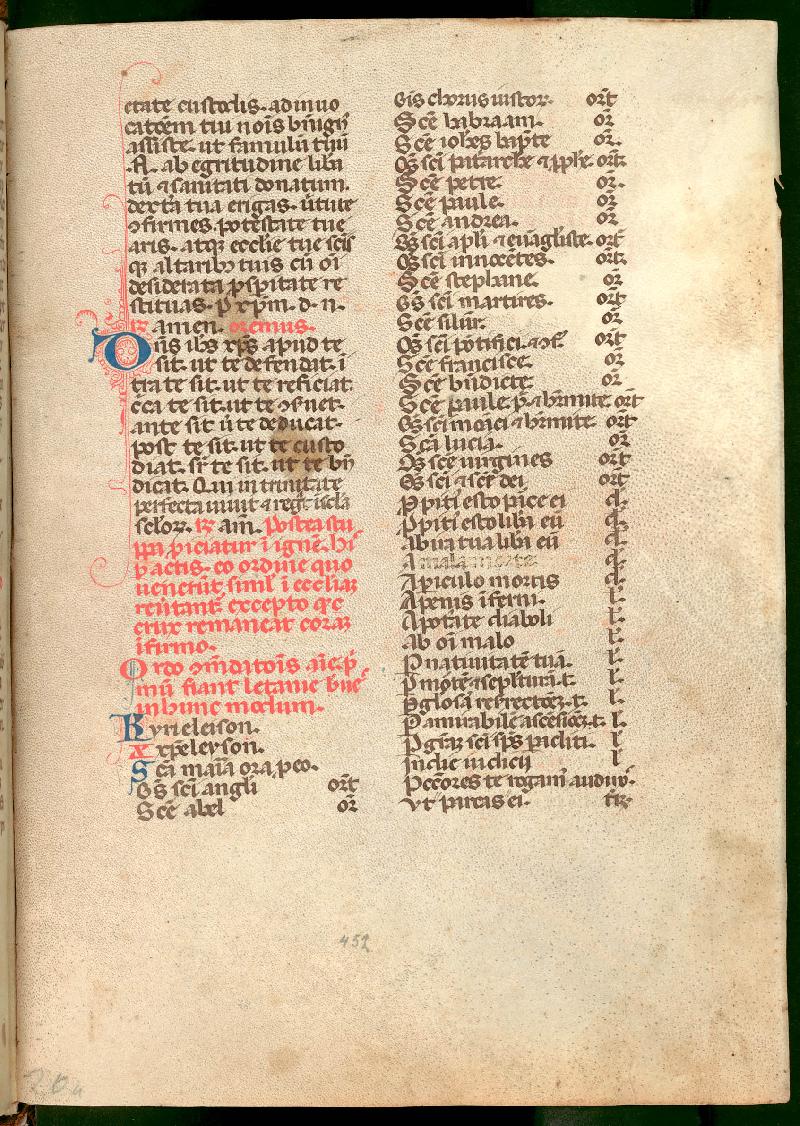 etate custodis. ad inuo
catōem tui nōis bn̄igꝰ
assiste. ut famulū tuū
.N. ab egritudine libā
tū ⁊ sanitati donatum.
dext̄a tua erigas. ūtute
ꝯfirmes. potestate tue
aris. atqꝫ ecclīe tue scīs
qꝫ altaribꝫ tuis cū oī
desiderata ꝓspitate re
stituas. P xp̄m. d. n.
℞ amen. oremus.
Dn̄s ih̄s xp̄s apud te
sit. ut te defendat. ī
tra te sit. ut te reficiat.
c̄ca te sit. ut te ꝯs̄uet.
ante sit ūt te deducat.
post te sit. ut te custo
diat. sr̄ te sit. ut te bn̄
dicat. Qui in trinitate
perfecta uiuit ⁊ regt̄ ī scl̄a
sclor̄. ℞ am̄. Postea stu
ppa piciatur ī ignē. Hī
pactis. eo ordine quo
uenerūt siml̄ ī eccl̄iaꝫ
reūtant. excepto qꝫ
crux remaneat coraꝫ
īfirmo.
Ordo ꝯm̄datōis aīe. p̄
mū fiant letanie breues
in hunc modum.
Kyrieleison.
xp̄eleyson.
Scā maīa ora p eo.
Oꝫ scī angli ort̄
Scē abel or̄
Oīs chorus iustor. ort̄
Scē habraam. or̄
Scē ioh̄es bapt̄e or̄.
Oꝫ scī pat̄arche ⁊ ꝓph̄e. ort̄.
Scē petre. or̄.
Scē paule. or̄
Scē andrea. or̄
Oꝫ scī apl̄i ⁊ euāgliste. ort̄
Oꝫ scī innocētes. ort̄.
Scē stephane. or̄
Oꝫ scī martires. ort̄
Scē silur̄. or̄
Oꝫ scī pōtifici. ⁊ ꝯf. ort̄
Scē francisce. or̄
Scē bn̄dicte. or̄
Scē paule. p̄. ⁊ hr̄mite. ort̄
Oꝫ scī mōaci ⁊ hr̄mite. ort̄
Scā lucia. or̄
Oꝫ scē uirgines ort̄
Oꝫ scī ⁊ scē dei ort̄
Ppiti esto pace ei q.
Ppiti esto libā eū q.
Ab ira tua libā eū q.
A mala morte q.
A piculo mortis q.
A penis īferni. l.
A potāte diaboli l.
Ab oī malo l.
P natiuitatē tuā. l.
P motē ⁊ sepl̄turā. t. l.
P glosā resrectōeꝫ. t. l.
P amirabilē ascēsiōeꝫ. t. l.
P gr̄aꝫ scī sp̄s pacliti. l
In die iudicij l
Pccōres te rogam̄ audi nꝰ.
Vt parcas ei. t̄r̄.
452